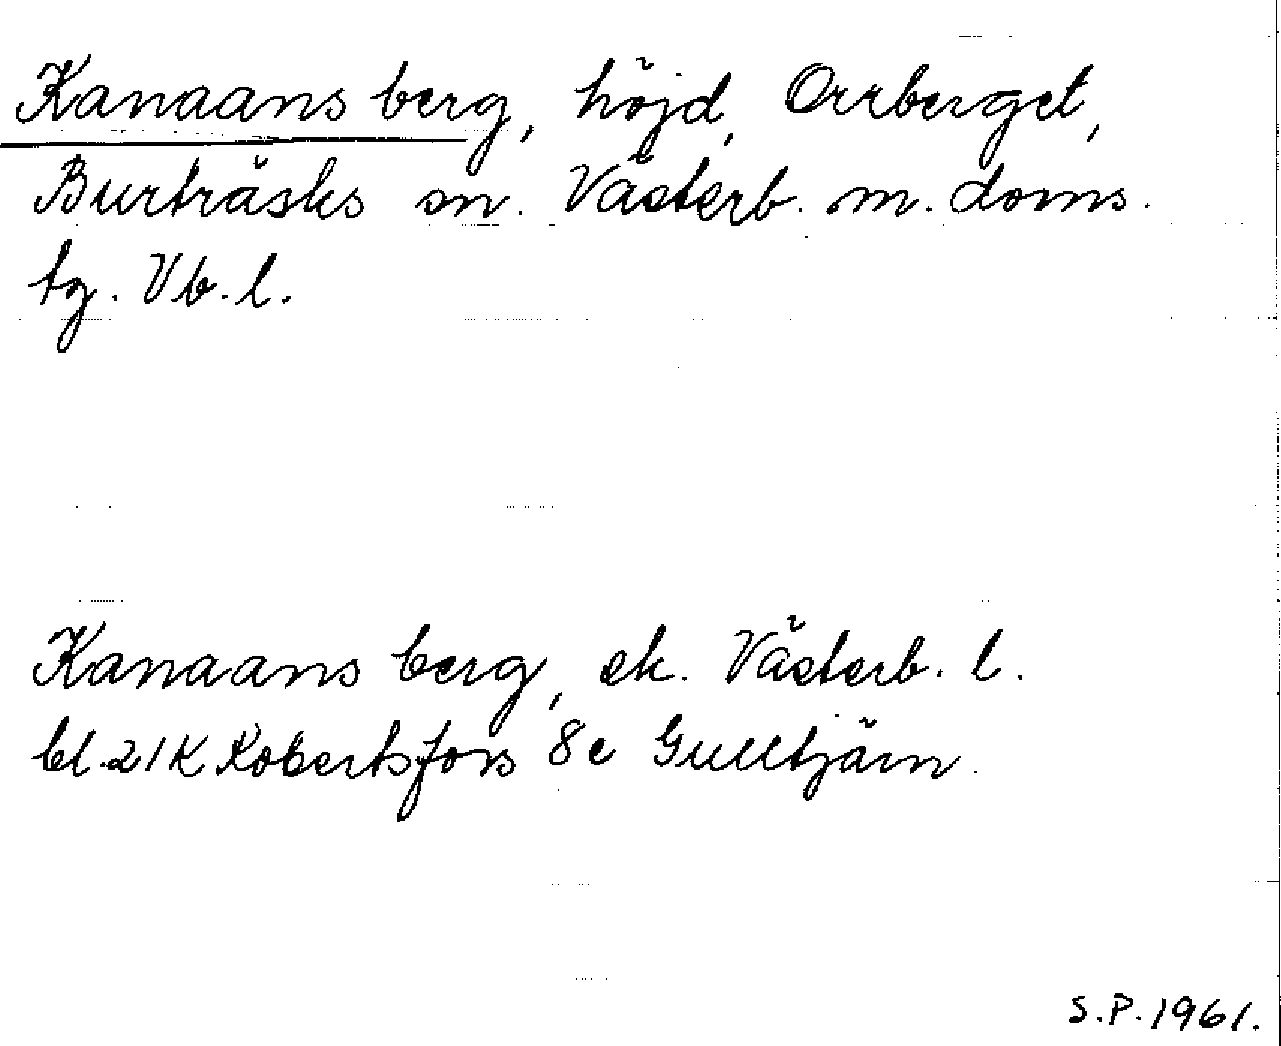 Kanaans berg, höjd, Orrberget,
Burträsks sn. Västerb. m. doms.
tg. Vb. l.
Kanaans berg, ek. Västerb. l.
bl. 21K Robertsfors 8e Gulltjärn.
S.P. 1961.